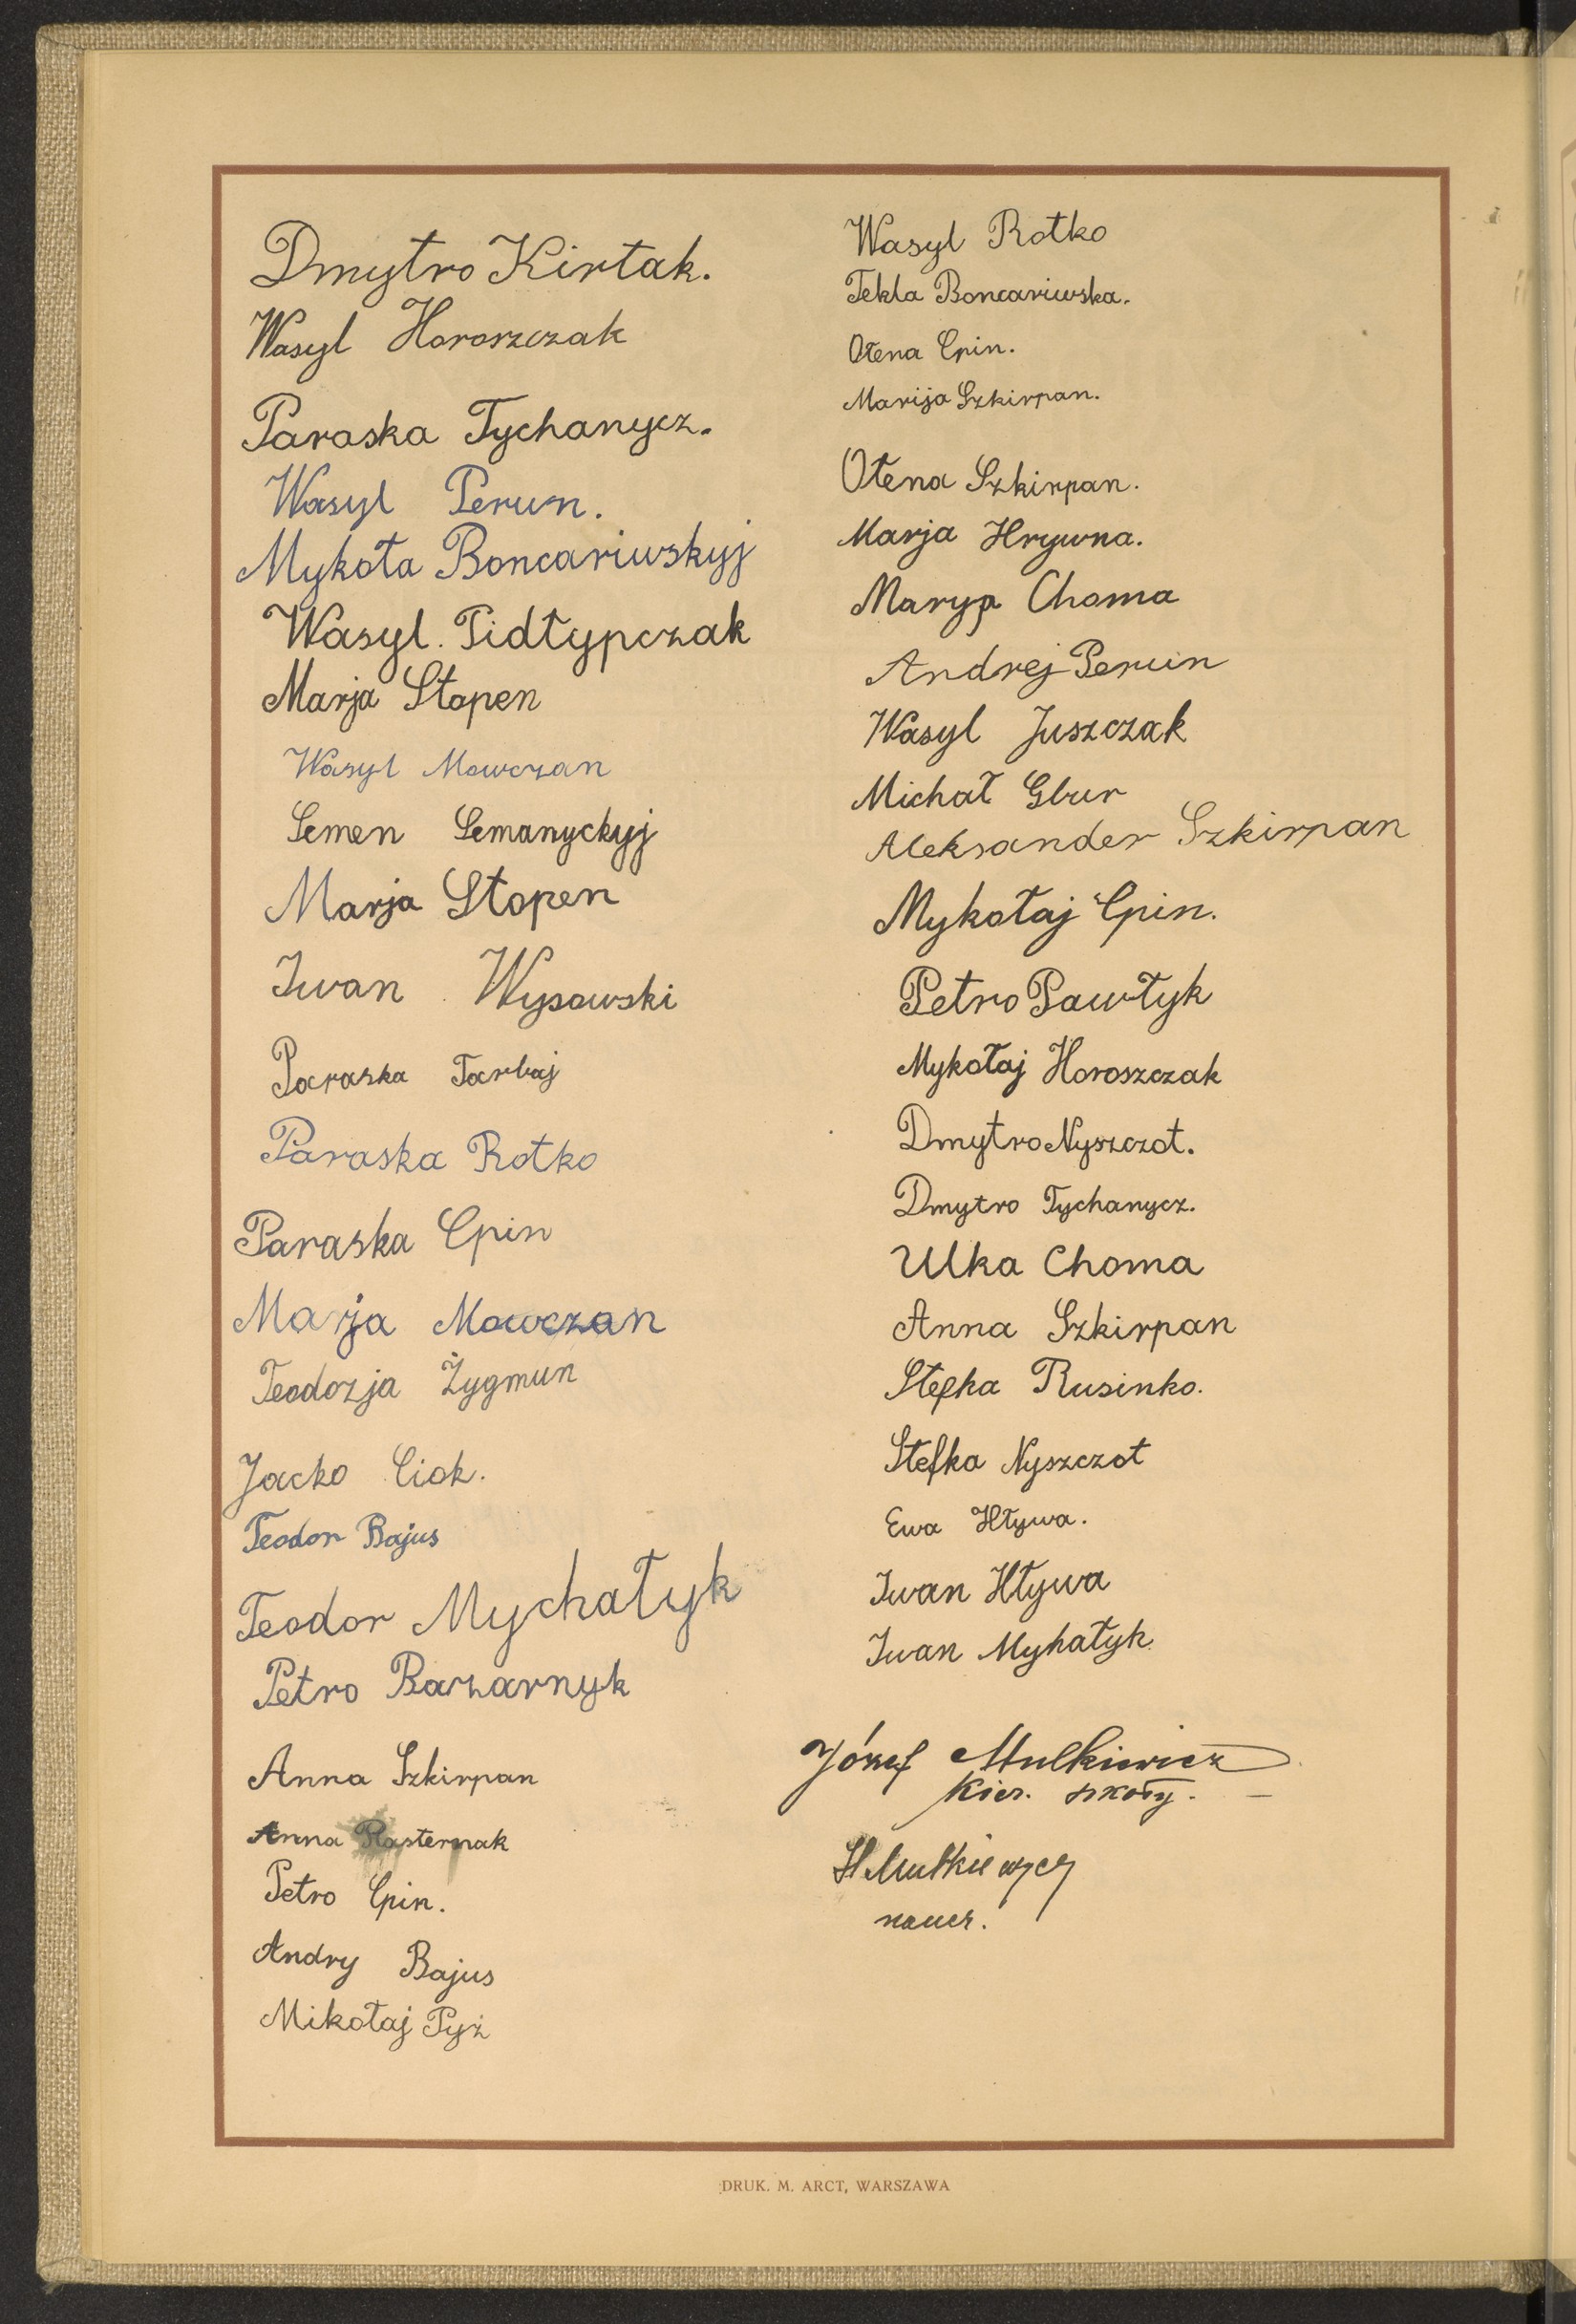 Dmytro Kirtak.
Wasyl Horoszczak
Paraska Tychanycz.
Wasyl Perun.
Mykoła Boncariwskyj
Wasyl. Pidłypczak
Marja Stopen
Wasyl Mowczan
Semen Semanyckyj
Marja Stopen
Iwan Wysowski
Paraska Tarbaj
Paraska Rotko
Paraska Cpin
Marja Mowczan
Teodozja Żygmun
Jacko Ciok.
Teodor Bajus
Teodor Mychałyk
Petro Bazarnyk
Anna Szkirpan
Anna Pasternak
Petro Cpin.
Andry Bajus
Mikołaj Pyż
Wasyl Rotko
Tekla Boncariwska.
Ołena Cpin.
Marija Szkirpan.
Ołena Szkirpan.
Marja Hrywna.
Maryja Choma
Andrej Perun
Wasyl Juszczak
Michał Gbur
Aleksander Szkirpan
Mykołaj Cpin.
Petro Pawłyk
Mykołaj Horoszczak
Dmytro Nyszczot.
Dmytro Tychanycz.
Ulka Choma
Anna Szkirpan
Stefka Rusinko.
Stefka Nyszczot
Ewa Hływa.
Iwan Hływa
Iwan Myhałyk
Józef Mulkiewicz
Kier. szkoły.
H Mulkiewicz
naucz.
DRUK. M. ARCT, WARSZAWA